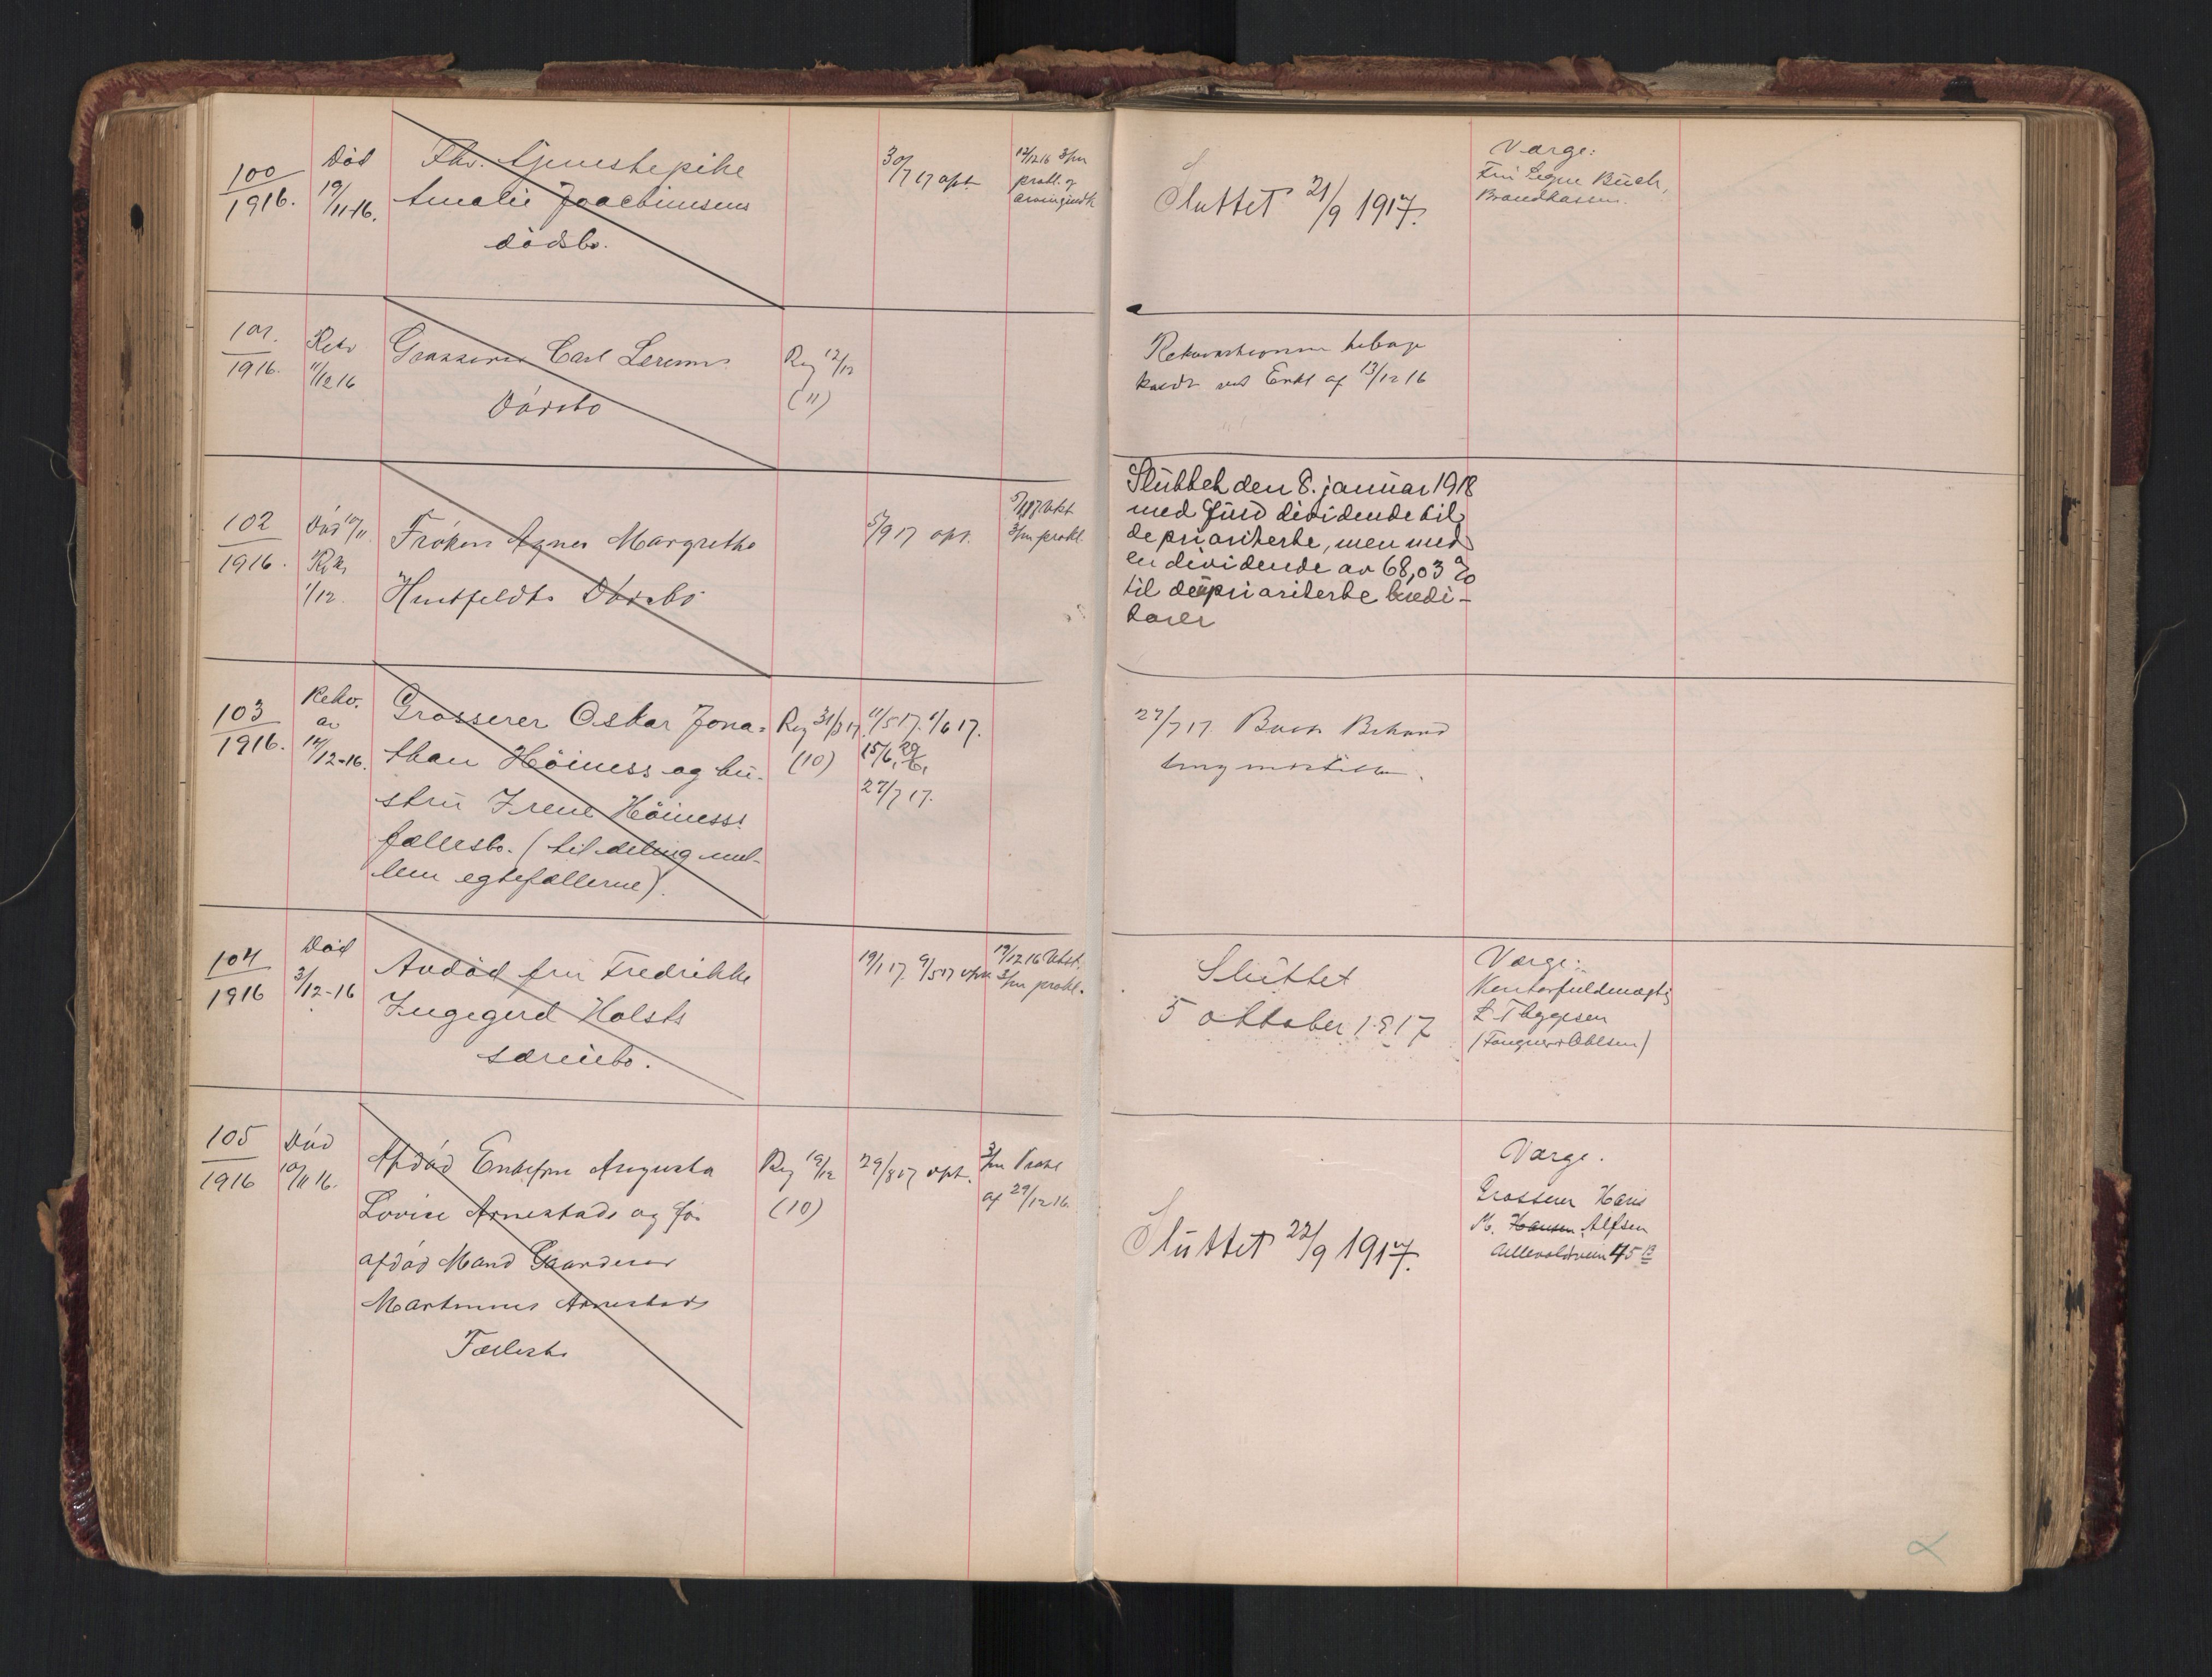 100
1916.
Död
19/11-16.
Fhv. tjenestepike
Amalie Joachimsens
dödsbo.
30/7 17 opt.
12/12 16 3/m
prokl. og
Sluttet 21/9 1917.
Værge:
Frü Signe Büch,
Brandkassen.
101.
1916.
Rekv
11/12 16
Grosserer Carl Lorens
Dödsbo
Reg 12/12
(11)
Rekvisitionen tilbage
kaldt ved Erkl af 13/12 16
102
1916.
Död 10/11.
Rekv
1/12.
Fröken Agnes Margrethe
Huitfeldts Dödsbo
5/9 17 opt.
3/m prokl.
Slüttet den 8. januar 1918
med füld dividende til
de prioriterte, men med
en dividende av 68,03 %
til de üprioriterte kredi-
torer
103
1916.
Rekv.
av
14/12-16.
Grosserer Oskar Jona-
than Höiness og hü-
strü Irene Höiness's
fællesbo. (til deling mel-
lem egtefællerne).
Reg 31/3 17
(10)
11/5 17. 1/6 17.
15/6, 29/6,
27/7 17.
27/7 17. Boets Behand
ling indstillet.
104
1916
Död
3/12-16
Avdöd frü Fredrikke
Ingegerd Holsts
særeiebo.
19/1 17. 9/5 17 opt.
19/12 16 Utst.
3/m prokl.
Slüttet
5 oktober 1917
Værge:
Kontorfuldmægtig
L. Thygesen
(Fougner & Ohlsen)
105
1916
Död
10/11 16.
Afdöd Enkefru Augusta
Lovise Arnestads og för
afdöd Mand Gaardeier
Martinus Arnestads
Fællesbo
Reg 19/12
(10)
29/8 17 opt.
3/m Prokl
af 29/12 16.
Slüttet 22/9 1917.
Værge.
Grosserer Hans
M. Hansen Alfsen
Ullevoldsveien 45 B